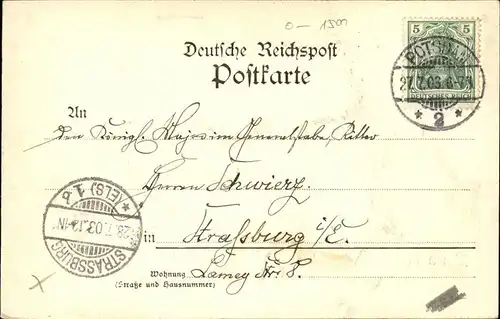 0-1500
5 5
POTSDAM
27.7.03. 6-7N
DEUTSCHES REICH
* 2 *
Deutsche Reichspost
Postkarte
An
den Königl. Major im Generalstabe, Ritter
Herren Schwierz.
in Strassburg i/E.
Wohnung Lamey Str. 8.
(Straße und Hausnummer)
STRASSBURG
28.7.03.
* (ELS) 1